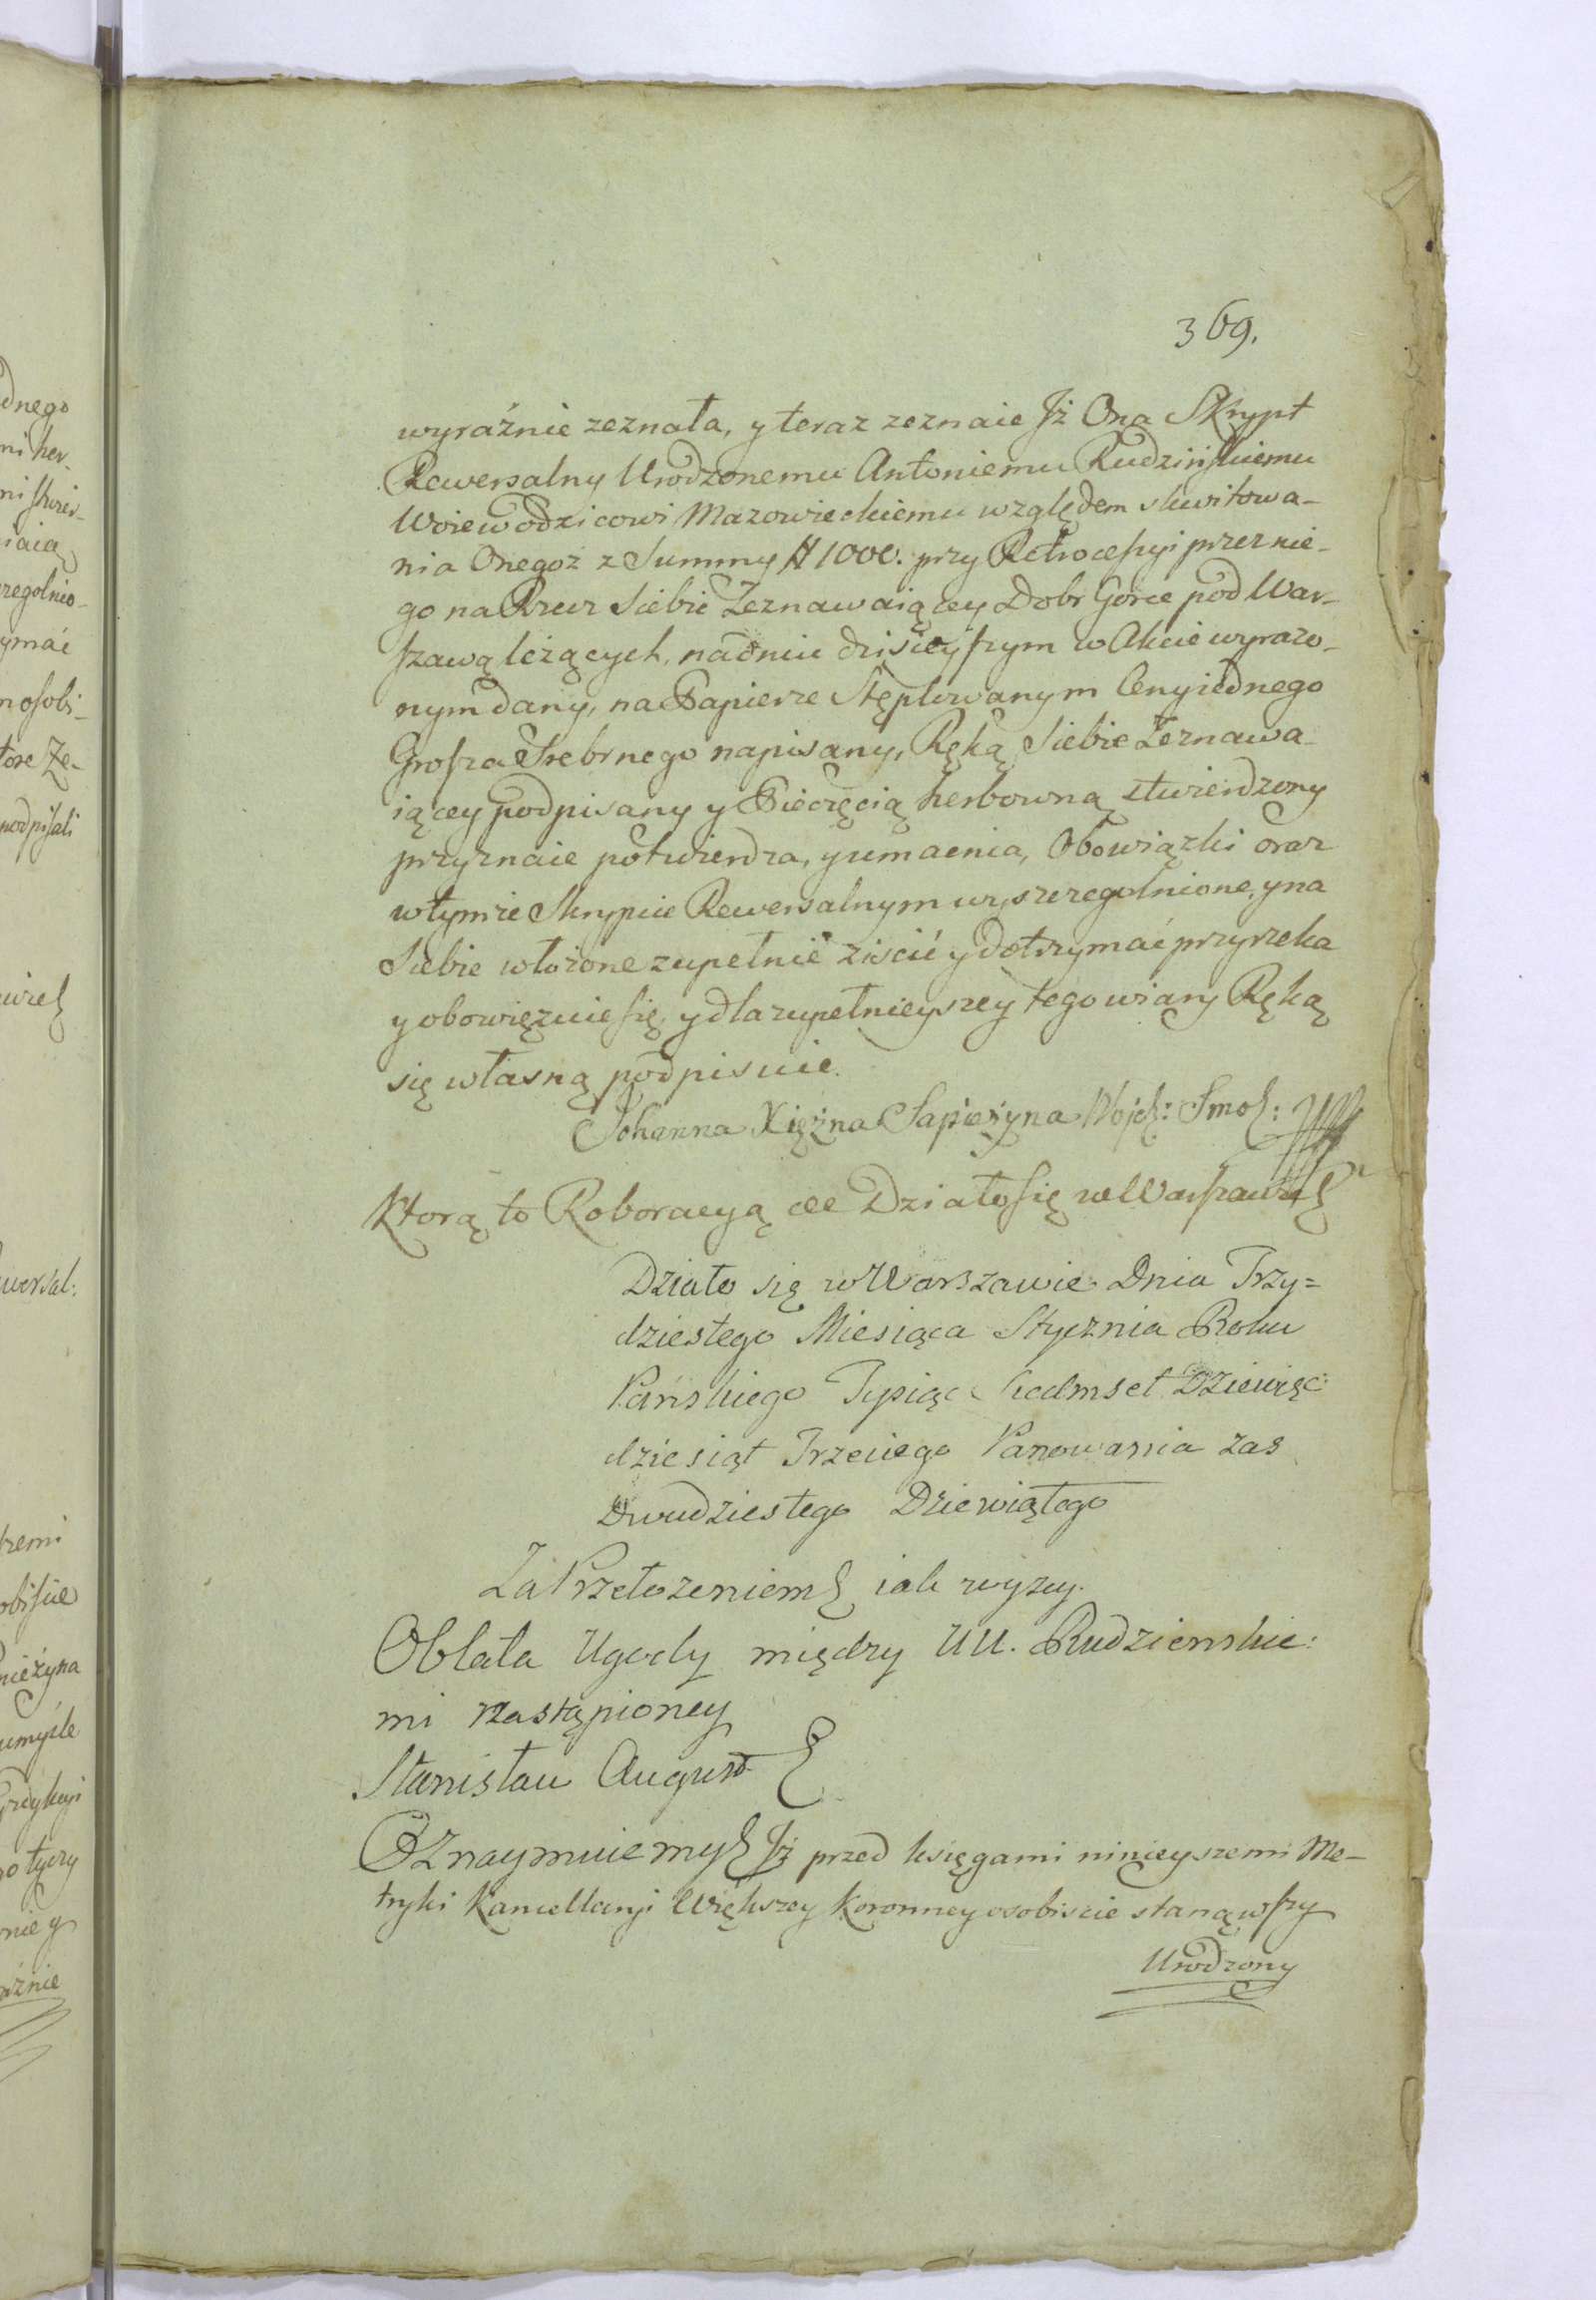 369.
wyraźnie zeznała, y teraz zeznaie Jż Ona Skrypt
Rewersalny Urodzonemu Antoniemu Rudzińskiemu
Woiewodzicowi Mazowieckiemu względem skwitowa-
nia Onegoż z Summy # 1000. przy Retrocessyi przez nie-
go na Rzecz Siebie Zeznawaiącey Dobr Gorce pod War-
szawą leżących, na dniu dzisieyszym w Akcie wyrażo-
nym dany, na Papierze Stęplowanym Ceny iednego
Grosza Srebrnego napisany, Ręką Siebie Zeznawa-
iącey podpisany y Pieczęcią herbowną stwierdzony
przyznaie potwierdza, y umacnia, Obowiązki oraz
w tymże Skrypcie Rewersalnym wyszczegolnione, y na
Siebie włożone zupełnie ziścić y dotrzymać przyrzeka
y obowięzuie się, y dla zupełnieyszey tego wiary Ręką
się własną podpisuie.
Johanna Xiężna Sapieżyna Wojew: Smol:
Ktorą to Roboracyą etc Działo się w Warszawie
Działo się w Warszawie Dnia Trzy=
dziestego Miesiąca Stycznia Roku
Pańskiego Tysiąc Siedmset Dziewięć
dziesiąt Trzeciego Panowania zas
Dwudziestego Dziewiątego
Za Przełożeniem iak wyzey.
Oblata Ugody między UU. Rudzienskie:
mi nastąpioney
Stanisław August
Oznaymuiemy Jż przed księgami ninieyszemi Me-
tryki Kancellaryi Większey Koronney osobiscie stanąwszy
Urodzony
dnego
ni her-
iaią
zegolnio-
ymać
osobi-
tore Ze-
podpisali
wersal:
nieżyna
umyśle
żnie